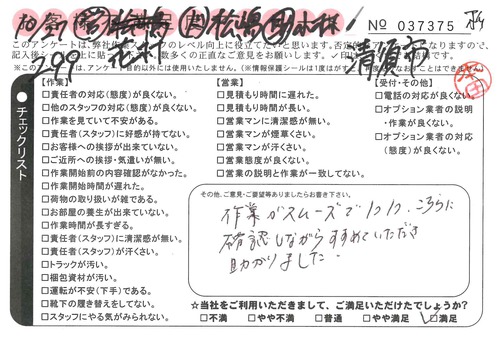 No 037375
このアンケートは、弊社作業スタッフのレベル向上に役立てたいと思います。
清須市
チェックリスト
【作業】
□責任者の対応(態度)が良くない。
□他のスタッフの対応(態度)が良くない。
□作業を見ていて不安がある。
□責任者(スタッフ)に好感が持てない。
□お客様への挨拶が出来ていない。
□ご近所への挨拶・気遣いが無い。
□作業開始前の内容確認がなかった。
□作業開始時間が遅れた。
□荷物の取り扱いが雑である。
□お部屋の養生が出来ていない。
□作業時間が長すぎる。
□責任者(スタッフ)に清潔感が無い。
□責任者(スタッフ)が汗くさい。
□トラックが汚い。
□梱包資材が汚い。
□運転が不安(下手)である。
□靴下の履き替えをしてない。
□スタッフにやる気がみられない。
【営業】
□見積もり時間に遅れた。
□見積もり時間が長い。
□営業マンに清潔感が無い。
□営業マンが煙草くさい。
□営業マンが汗くさい。
□営業態度が良くない。
□営業の説明と作業が一致してない。
【受付・その他】
□電話の対応が良くない。
□オプション業者の説明
・作業が良くない。
□オプション業者の対応
(態度)が良くない。
その他、ご意見・ご要望等ありましたらお書き下さい。
作業がスムーズでテキパキ、こちらに
確認しながらすすめていただき
助かりました。
☆当社をご利用いただきまして、ご満足いただけたでしょうか?
□不満 □やや不満 □普通 □やや満足 □満足